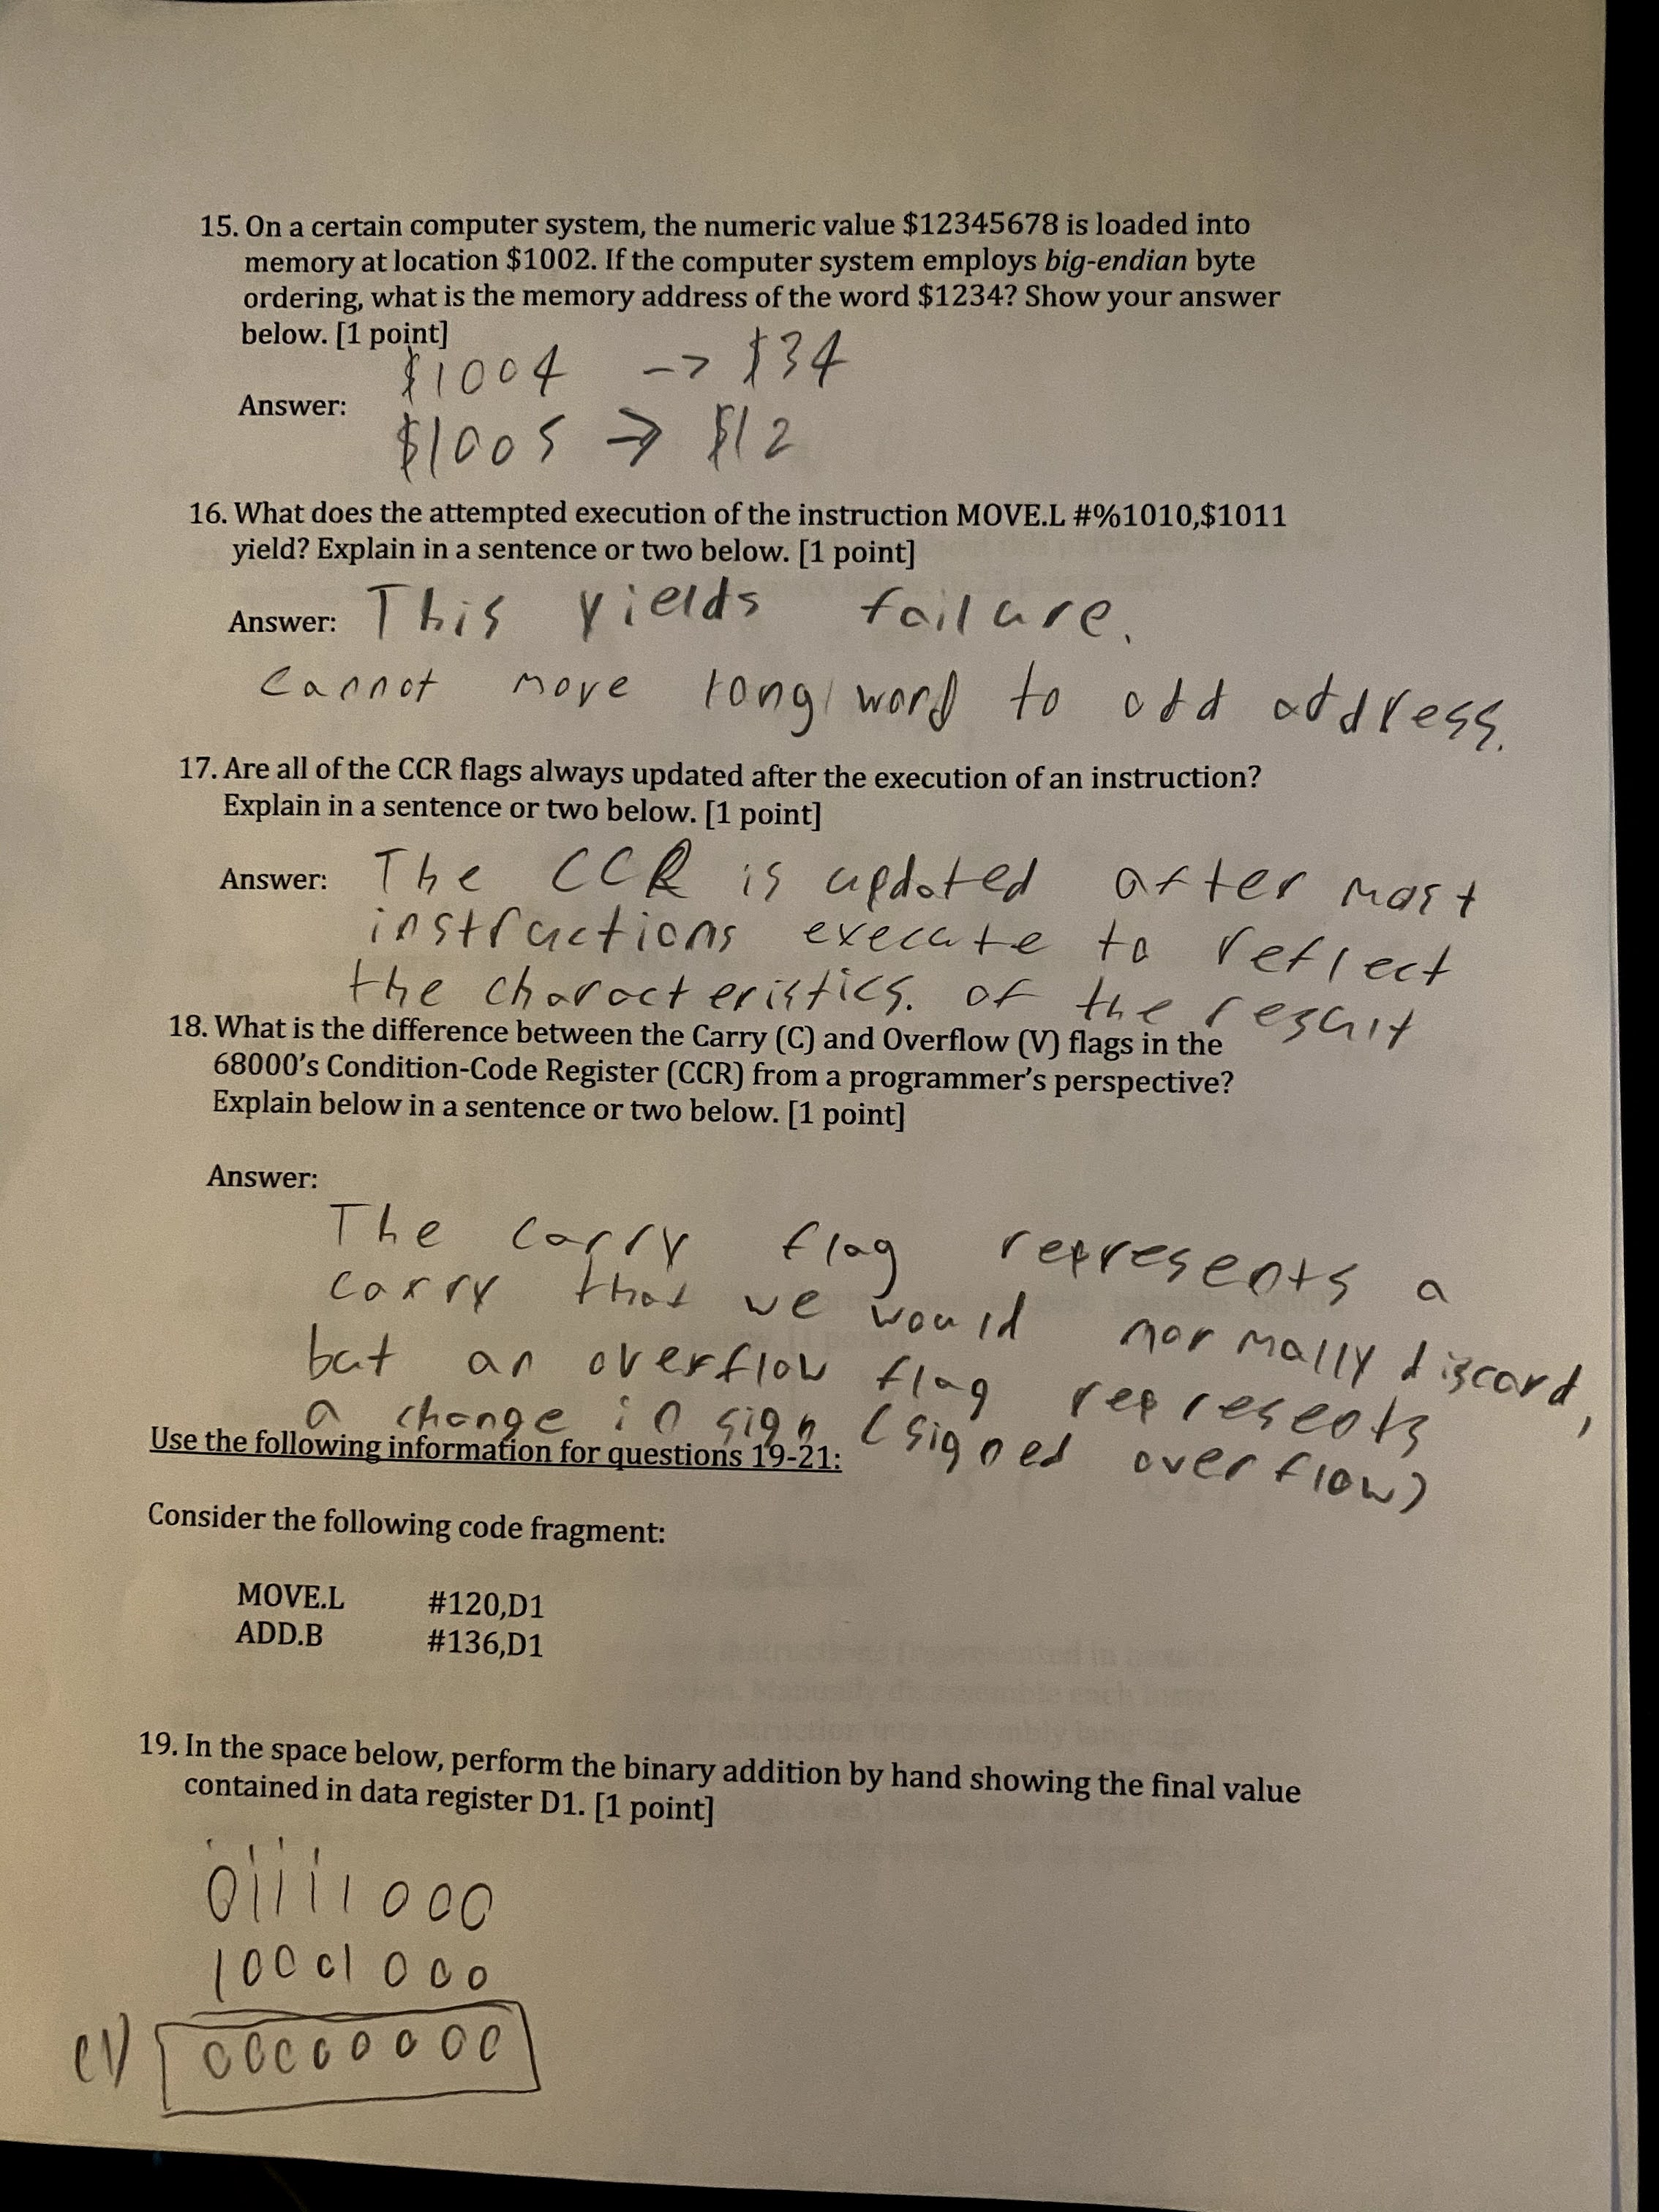 15. On a certain computer system, the numeric value $12345678 is loaded into
memory at location $1002. If the computer system employs big-endian byte
ordering, what is the memory address of the word $1234? Show your answer
below. [1 point]
$1004 -> $34
Answer:
$1005 -> $12
16. What does the attempted execution of the instruction MOVE.L #%1010,$1011
yield? Explain in a sentence or two below. [1 point]
Answer: This yields failure.
Cannot move long/word to odd address.
17. Are all of the CCR flags always updated after the execution of an instruction?
Explain in a sentence or two below. [1 point]
Answer: The CCR is updated after most
instructions execute to reflect
the characteristics. of the result
18. What is the difference between the Carry (C) and Overflow (V) flags in the
68000's Condition-Code Register (CCR) from a programmer's perspective?
Explain below in a sentence or two below. [1 point]
Answer:
The carry flag represents a
carry that we would normally discard,
but an overflow flag represents
a change in sign (signed overflow)
Use the following information for questions 19-21:
Consider the following code fragment:
MOVE.L #120,D1
ADD.B #136,D1
19. In the space below, perform the binary addition by hand showing the final value
contained in data register D1. [1 point]
01111000
10001000
(1) 00000000